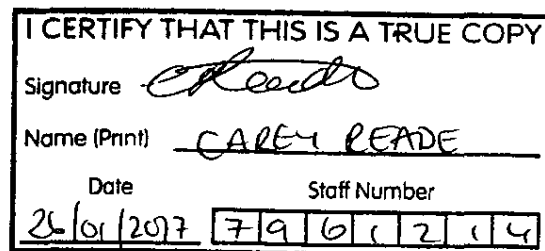 I CERTIFY THAT THIS IS A TRUE COPY
Signature CReade
Name (Print) CAREY READE
Date Staff Number
26/01/2017 7961214